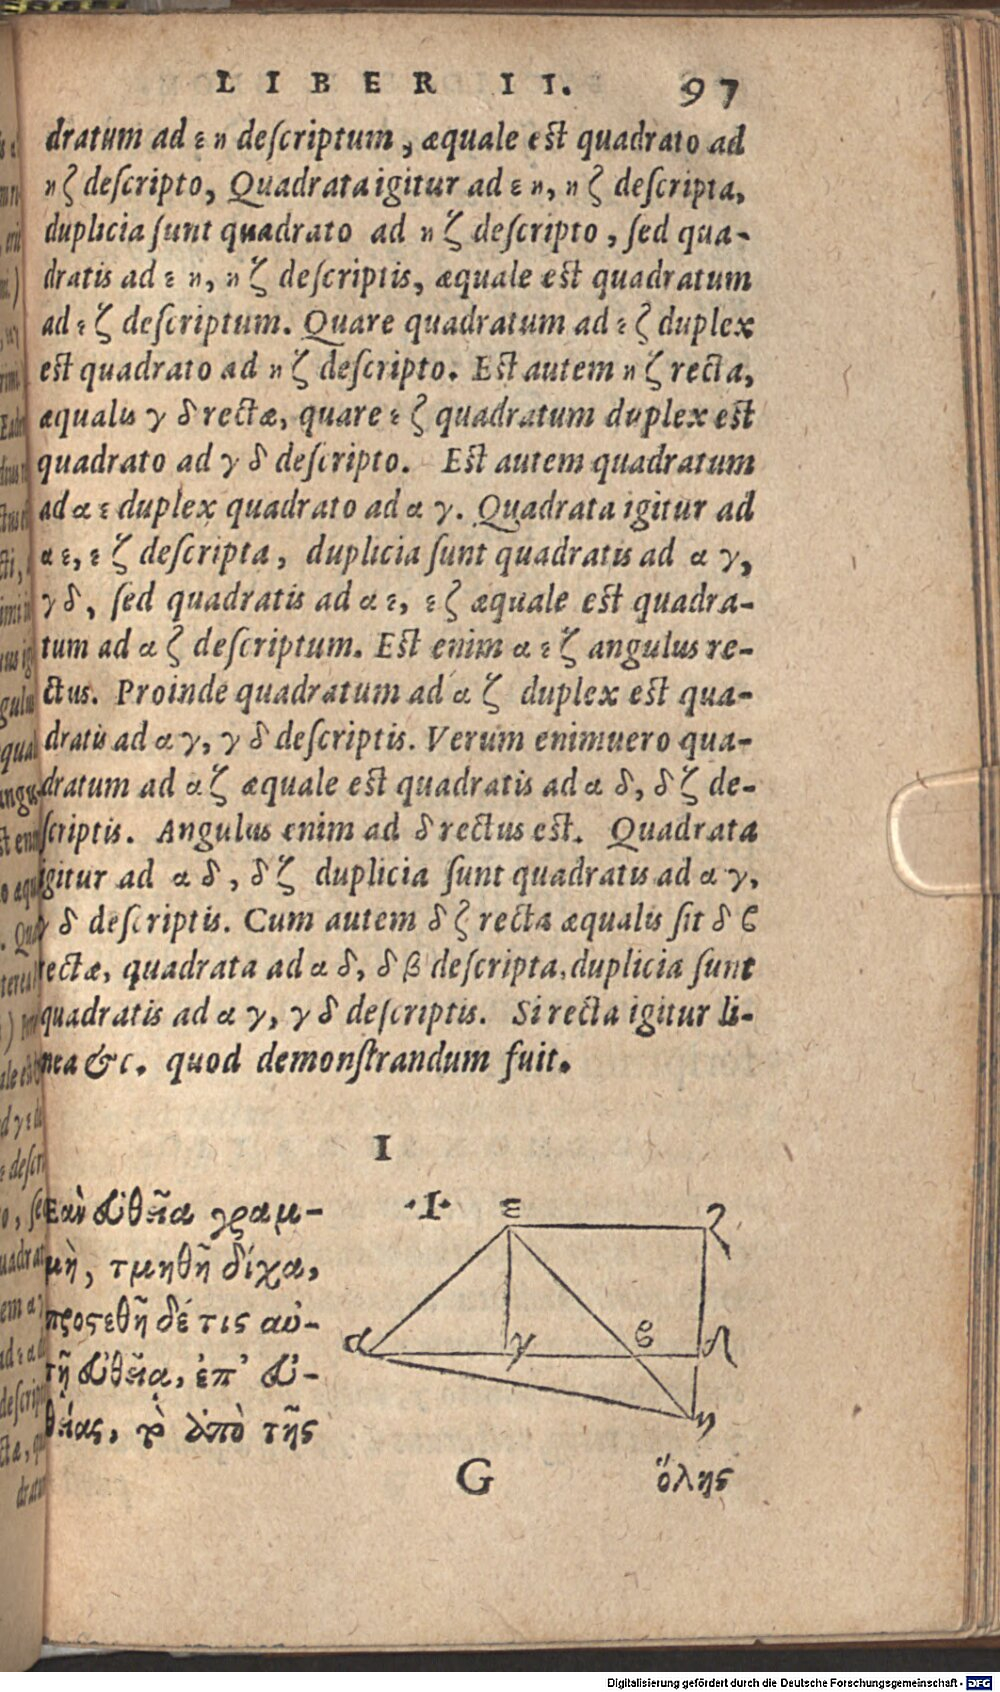 LIBER II. 97
dratum ad ε η descriptum, æquale est quadrato ad
η ζ descripto, Quadrata igitur ad ε η, η ζ descripta,
duplicia sunt quadrato ad η ζ descripto, sed qua-
dratis ad ε η, η ζ descriptis, æquale est quadratum
ad ε ζ descriptum. Quare quadratum ad ε ζ duplex
est quadrato ad η ζ descripto. Est autem η ζ recta,
æqualis γ δ rectæ, quare ε ζ quadratum duplex est
quadrato ad γ δ descripto. Est autem quadratum
ad α ε duplex quadrato ad α γ. Quadrata igitur ad
α ε, ε ζ descripta, duplicia sunt quadratis ad α γ,
γ δ, sed quadratis ad α ε, ε ζ æquale est quadra-
tum ad α ζ descriptum. Est enim α ε ζ angulus re-
ctus. Proinde quadratum ad α ζ duplex est qua-
dratis ad α γ, γ δ descriptis. Verum enimuero qua-
dratum ad α ζ æquale est quadratis ad α δ, δ ζ de-
scriptis. Angulus enim ad δ rectus est. Quadrata
igitur ad α δ, δ ζ duplicia sunt quadratis ad α γ,
γ δ descriptis. Cum autem δ ζ recta æqualis sit δ ϐ
rectæ, quadrata ad α δ, δ β descripta, duplicia sunt
quadratis ad α γ, γ δ descriptis. Si recta igitur li-
nea &c. quod demonstrandum fuit.
I
Εαὺ εὐθεῖα γραμ-
μὴ, τμηθῆ δίχα,
προςτεθῆ δέ τις αὐ-
τῆ εὐθεῖα, ἐπ' εὐ-
θείας, τὸ ἀπὸ τῆς
·I·
ε ζ
α γ ϐ δ
η
G ὅλης